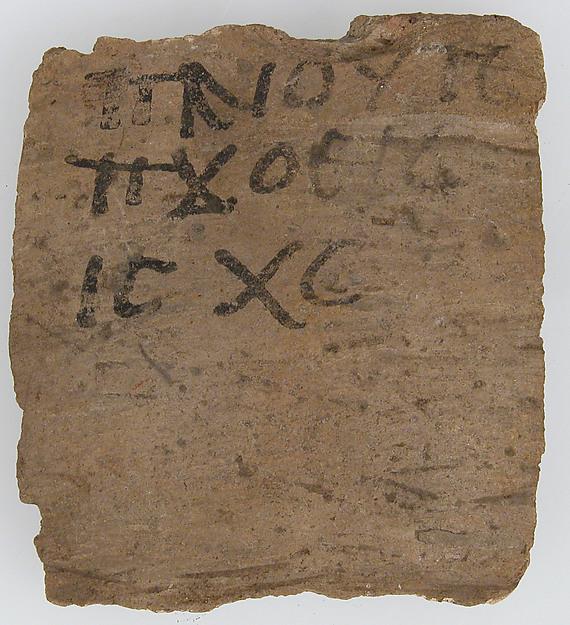 ⲠⲚⲞⲨⲦⲈ
ⲠϪⲞⲈⲒⲤ
ⲒⲤ ⲬⲤ